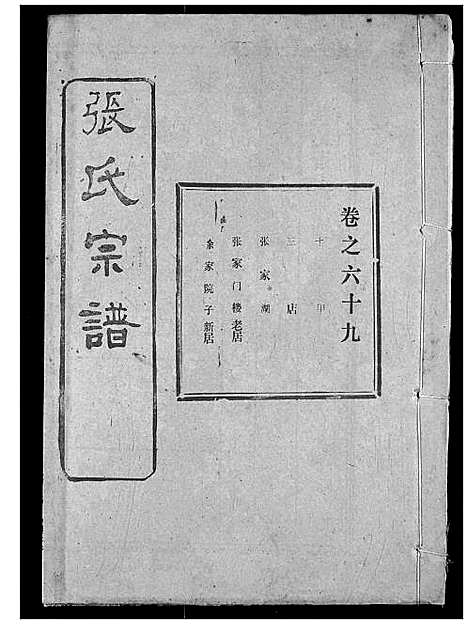 張氏宗譜
卷之六十九
十甲
三店
张家湖
张家门楼老居
余家院子新居